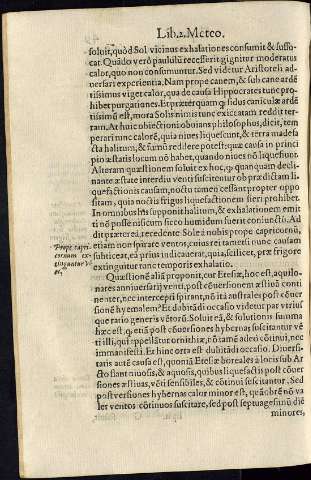 Lib.2. Meteo.
soluit, quòd Sol vicinus exhalationes consumit & suffo-
cat. Quādo verò paululū recesserit gignitur moderatus
calor, quo non consumuntur. Sed videtur Aristoteli ad-
uersari experientia. Nam prope canem, & sub cane ardē
tissimus viget calor, qua de causa Hippocrates tunc pro-
hibet purgationes. Et præterquam quod sidus caniculæ ardē
tissimū est, mora Solis nimis tunc exiccatam reddit ter-
ram. At huic obiectioni obuians philosophus, dicit, tem
perari tunc calorē, quia niues liquescunt, & terra madefa
cta halitum, & fumū reddere potest: quæ causa in princi
pio æstatis locum nō habet, quando niues nō liquefiunt.
Alteram quæstionem soluit ex hoc, quod quanquam decli-
nante æstate interdiu venti suscitentur ob prædictam li-
quefactionis causam, noctu tamen cessant propter oppo
sitam, quia noctis frigus liquefactionem fieri prohibet.
In omnibus his supponit halitum, & exhalationem emit
ti nō posse nisi cum sicco humidum fuerit coniunctū. Ad
dit præterea, recedente Sole à nobis prope capricornū,
etiam non spirare ventos, cuius rei tametsi nunc causam
subticeat, eā prius indicauerat, quia, scilicet, præ frigore
extinguitur tunc temporis exhalatio.
Prope capri
cornum ex-
tinguuntur
Quæstionē aliā proponit, cur Etesiæ, hoc est, aquilo-
nares anniuersarij venti, post cōuersionem æstiuā conti
nenter, nec intercepti spirant, nō ita australes post cōuer
sionē hyemalem? Et dubitādi occasio videtur par vtrius
que ratio generis vētorū. Soluit eā, & solutionis summa
hæc est, quod etiā post cōuersiones hybernas suscitantur vē
ti illi, qui appellātur ornithiæ, nō tamē adeò cōtinui, nec
immanifesti. Et hinc orta est dubitādi occasio. Diuersi-
tatis autē causa est, quoniā Etesiæ boreales à locis sub Ar
cto flant niuosis, & aquosis, quibus liquefactis post cōuer
siones æstiuas, vēti sensibiles, & cōtinui suscitantur. Sed
post versiones hybernas calor minor est, quā ob rē nō va
let ventos cōtinuos suscitare, sed post septuagesimū diē
minores,